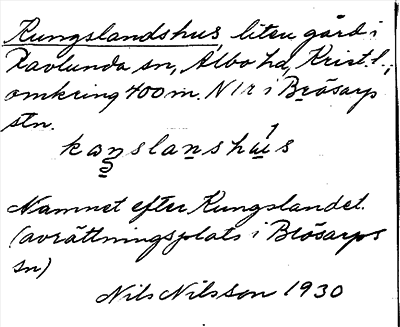 Kungslandshus, liten gård i
Ravlunda sn, Albo hd, Krist. l.,
omkring 400 m. N l r i Brösarps
stn.
Namnet efter Kungslandet.
(avrättningsplats i Brösarps
sn)
Nils Nilsson 1930